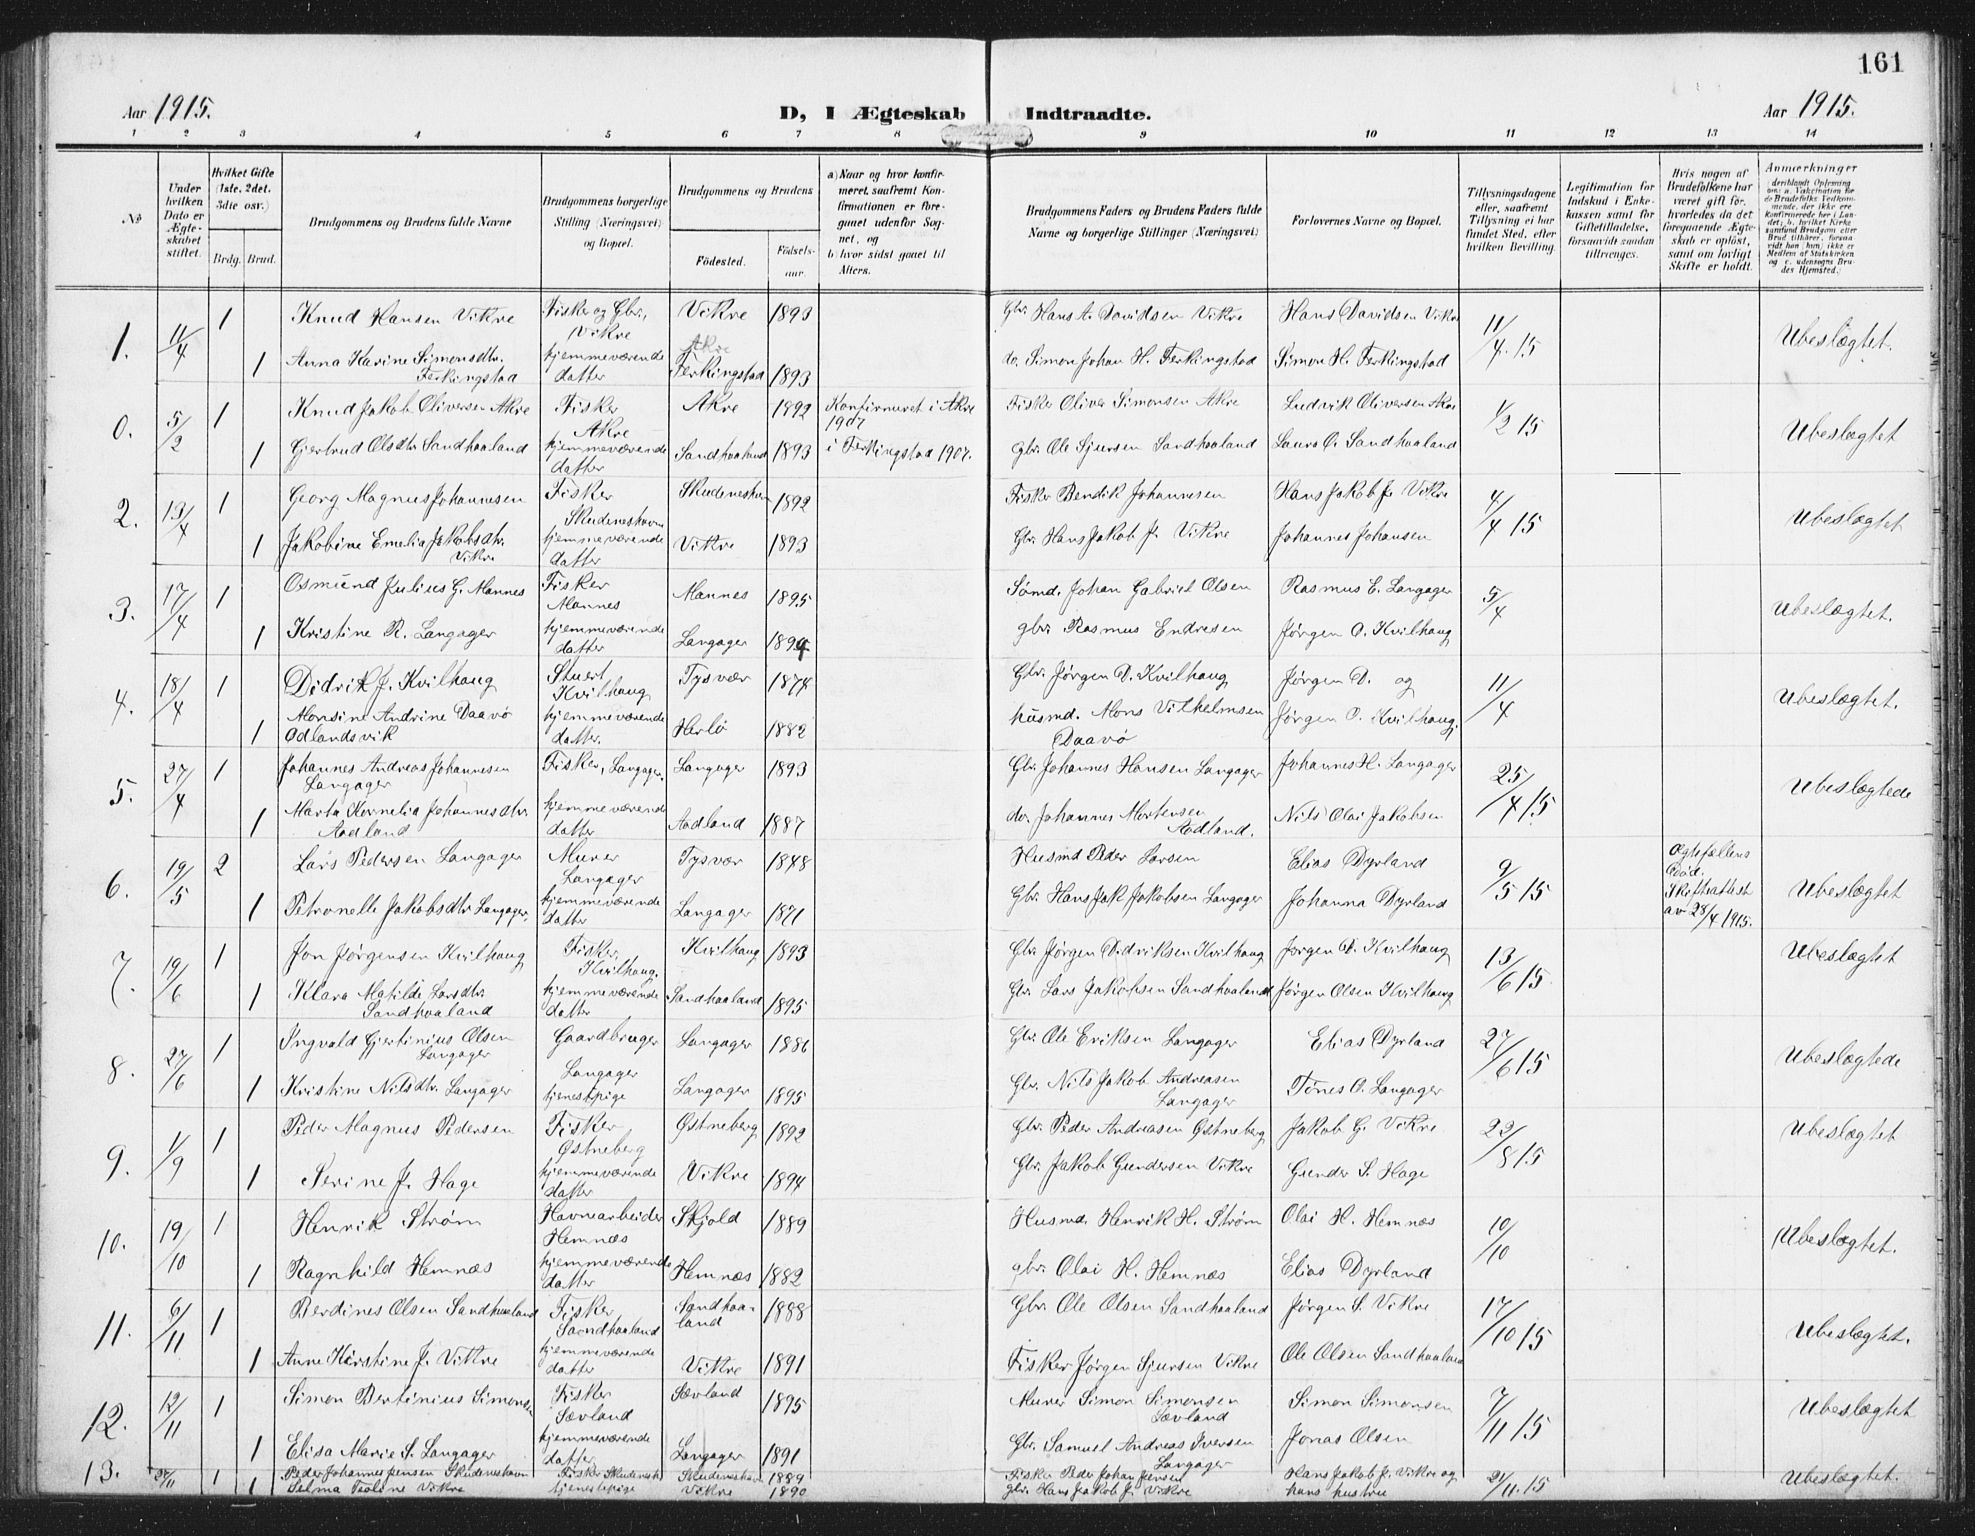 161
Aar 1915.
D, I Ægteskab Indtraadte.
Aar 1915.
1 2 3 4 5 6 7 8 9 10 11 12 13 14
No
Under hvilken Dato er Ægteskabet stiftet.
Hvilket Gifte (1ste, 2det, 3die osv.)
Brdg. Brud.
Brudgommens og Brudens fulde Navne
Brudgommens borgerlige Stilling (Næringsvei) og Bopæl.
Brudgommens og Brudens
Fødested.
Fødselsaar.
a) Naar og hvor konfirmeret, saafremt Konfirmationen er foregaaet udenfor Sognet, og
b) hvor sidst gaaet til Alters.
Brudgommens Faders og Brudens Faders fulde Navne og borgerlige Stillinger (Næringsvei)
Forlovernes Navne og Bopæl.
Tillysningsdagene eller, saafremt Tillysning ei har fundet Sted, efter hvilken Bevilling.
Legitimation for Indskud i Enkekassen samt for Giftetilladelse, forsaavidt saadan tiltrænges.
Hvis nogen af Brudefolkene har været gift før, hvorledes da det foregaaende Ægteskab er opløst, samt om lovligt Skifte er holdt.
Anmerkninger
1. 11/4 1 Knud Hansen Vikre Fisker og Gbr., Vikre Vikre 1893 Gbr. Hans A. Davidsen Vikre Hans Davidsen Vikre 11/4. 15 Ubeslægtet.
1 Anna Karine Simonsdtr. Ferkingstad hjemmeværende datter Akre Ferkingstad 1893 do. Simon Johan H. Ferkingstad Simon H. Ferkingstad
0. 5/2 1 Knud Jakob Oliversen Akre Fisker Akre Akre 1892 Konfirmeret i Akre 1907 Fisker Oliver Simonsen Akre Ludvik Oliversen Akre 1/2 15 Ubeslægtet
1 Gjertrud Olsdtr. Sandhaaland hjemmeværende datter Sandhaaland 1893 i Ferkingstad 1907. gbr. Ole Sjursen Sandhaaland Laura O. Sandhaaland
2. 13/4 1 Georg Magnus Johannesen Fisker Skudeneshavn Skudeneshavn 1892 Fisker Bendik Johannesen Hans Jakob J. Vikre 4/4 15 Ubeslægtet
1 Jakobine Emelia Jakobsdtr. Vikre hjemmeværende datter Vikre 1893 Gbr. Hans Jakob J. Vikre Johannes Johansen
3. 17/4 1 Osmund Julius G. Mannes Fisker Mannes Mannes 1895 Sømd. Johan Gabriel Olsen Rasmus E. Langager 5/4 Ubeslægtet.
1 Kristine R. Langager hjemmeværende datter Langager 1894 gbr. Rasmus Endresen Jørgen O. Kvilhaug
4. 18/4 1 Didrik J. Kvilhaug Stuert Kvilhaug Tysvær 1874 Gbr. Jørgen D. Kvilhaug Jørgen D. og 11/4 Ubeslægtet.
1 Monsine Andrine Daavø Odlandsvik hjemmeværende datter. Herlø 1882 husmd. Mons Vilhelmsen Daavø Jørgen O. Kvilhaug,
5. 27/4 1 Johannes Andreas Johannesen Langager Fisker, Langager. Langager 1893 Gbr. Johannes Hansen Langager Johannes H. Langager 25/4 15 Ubeslægtede
1 Marta Kornelia Johannesdtr. Aadland hjemmeværende datter Aadland 1887 do. Johannes Mortensen Aadland. Nils Olai Jakobsen
6. 19/5 2 Lars Pedersen Langager Murer Langager Tysvær 1848 Husmd Peder Larsen Elias Dyrland 9/5 15 Ægtefællens Død. Skifteattest av 28/4 1915. Ubeslægtet
1 Petronelle Jakobsdtr. Langager. hjemmeværende datter Langager 1871 Gbr. Hans Jak Jakobsen Langager Johanna Dyrland
7. 19/6 1 Jon Jørgensen Kvilhaug Fisker, Kvilhaug. Kvilhaug 1893 Gbr. Jørgen Didriksen Kvilhaug Jørgen D. Kvilhaug 13/6 15 Ubeslægtet
1 Klara Matilde Larsdtr. Sandhaaland hjemmeværende datter Sandhaaland 1895 Gbr. Lars Jakobsen Sandhaaland Jørgen Olsen Kvilhaug
8. 27/6 1 Ingvald Gjertinius Olsen Langager Gaardbruger Langager Langager 1886 Gbr. Ole Eriksen Langager Elias Dyrland 27/6 15 Ubeslægtede
1 Kristine Nilsdtr. Langager tjenestpige Langager 1895 Gbr. Nils Jakob Andreasen Langager Tønes O. Langager
9. 1/9 1 Peder Magnus Pedersen Fisker Østneberg Østneberg 1892 Gbr. Peder Andreasen Østneberg Jakob G. Vikre 22/8 15 Ubeslægtet
1 Serine J. Hage hjemmeværende datter Vikre 1894 Gbr. Jakob Gundersen Vikre Gunder S. Hage
10. 19/10 1 Henrik Strøm Havnearbeider Hemnæs Skjold 1889 Husmd. Henrik H. Strøm Olai H. Hemnæs 10/10 Ubeslægtet.
1 Ragnhild Hemnæs hjemmeværende datter Hemnæs 1882 gbr. Olai H. Hemnæs Elias Dyrland
11. 6/11 1 Berdines Olsen Sandhaaland Fisker Sandhaaland Sandhaaland 1888 Gbr. Ole Olsen Sandhaaland Jørgen S. Vikre 17/10 15 Ubeslægtet.
1 Anne Kirstine J. Vikre hjemmeværende datter Vikre 1891 Fisker Jørgen Sjursen Vikre Ole Olsen Sandhaaland
12. 12/11 1 Simon Bertinius Simonsen Fisker Sævland Sævland 1895 Murer Simon Simonsen Sævland Simon Simonsen 7/11 15 Ubeslægtet
1 Elisa Marie S. Langager hjemmeværende datter Langager 1891 Gbr. Samuel Andreas Iversen Langager Jonas Olsen
13. 27/11 1 Peder Johannes Jensen Skudeneshavn Fisker Skudenesh. Skudeneshavn 1889 Fisker Peder Johan Jensen Hans Jakob J. Vikre og 21/11. 15 Ubeslægtet.
1 Selma Pauline Vikre tjenestepige Vikre 1890 gbr. Hans Jakob J. Vikre hans hustru